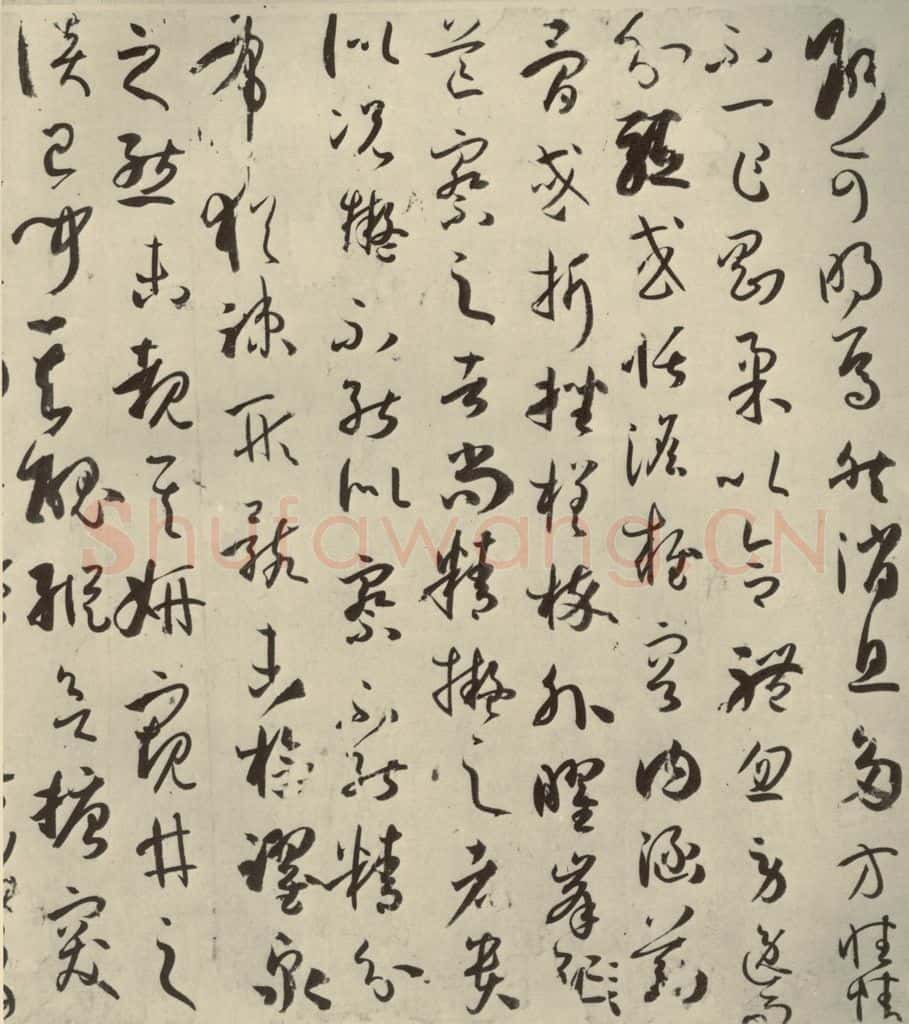 斷可明焉然消息多方性情
不一乍剛柔以合體忽勞逸而
分驅或恬憺雍容內涵筋
骨或折挫槎枿外曜峯
芒察之者尚精擬之者貴
似況擬不能似察不能精分
布猶疎形骸未檢躍泉
之態未覩其妍窺井之
談已聞其醜縱欲搪突
Shufawang.CN